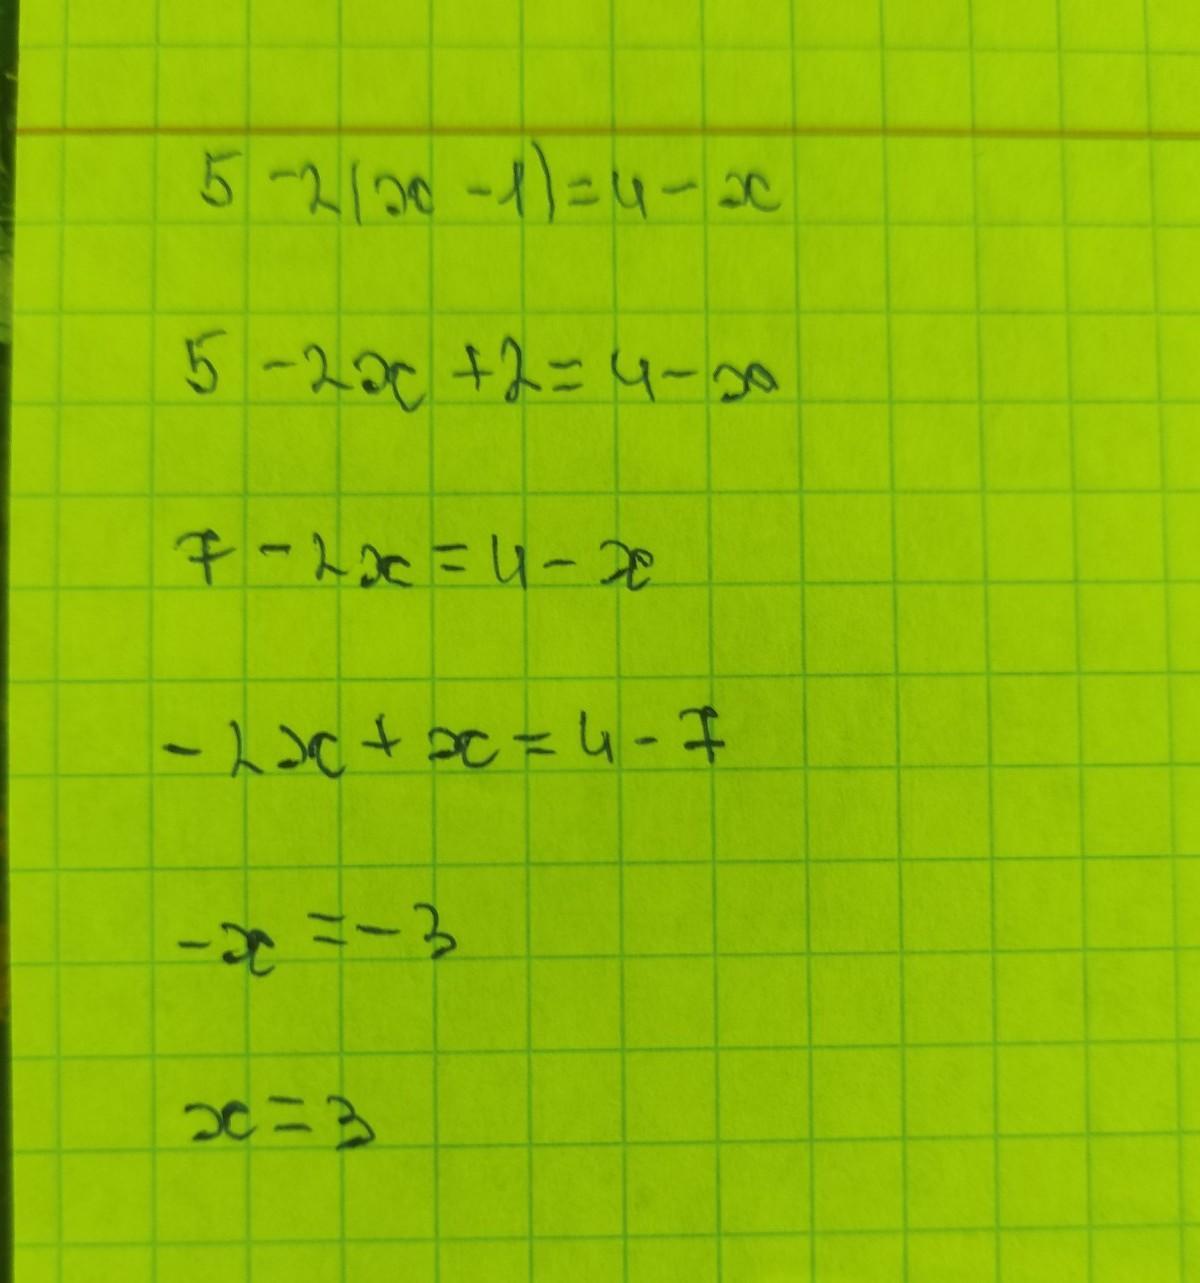 5 - 2(x - 1) = 4 - x
5 - 2x + 2 = 4 - x
7 - 2x = 4 - x
- 2x + x = 4 - 7
- x = - 3
x = 3